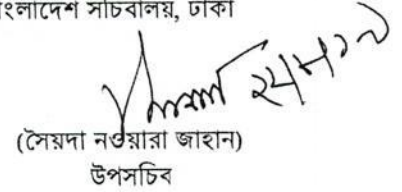 ংলাদেশ সচিবালয়, ঢাকা
(সৈয়দা নওয়ারা জাহান)
উপসচিব